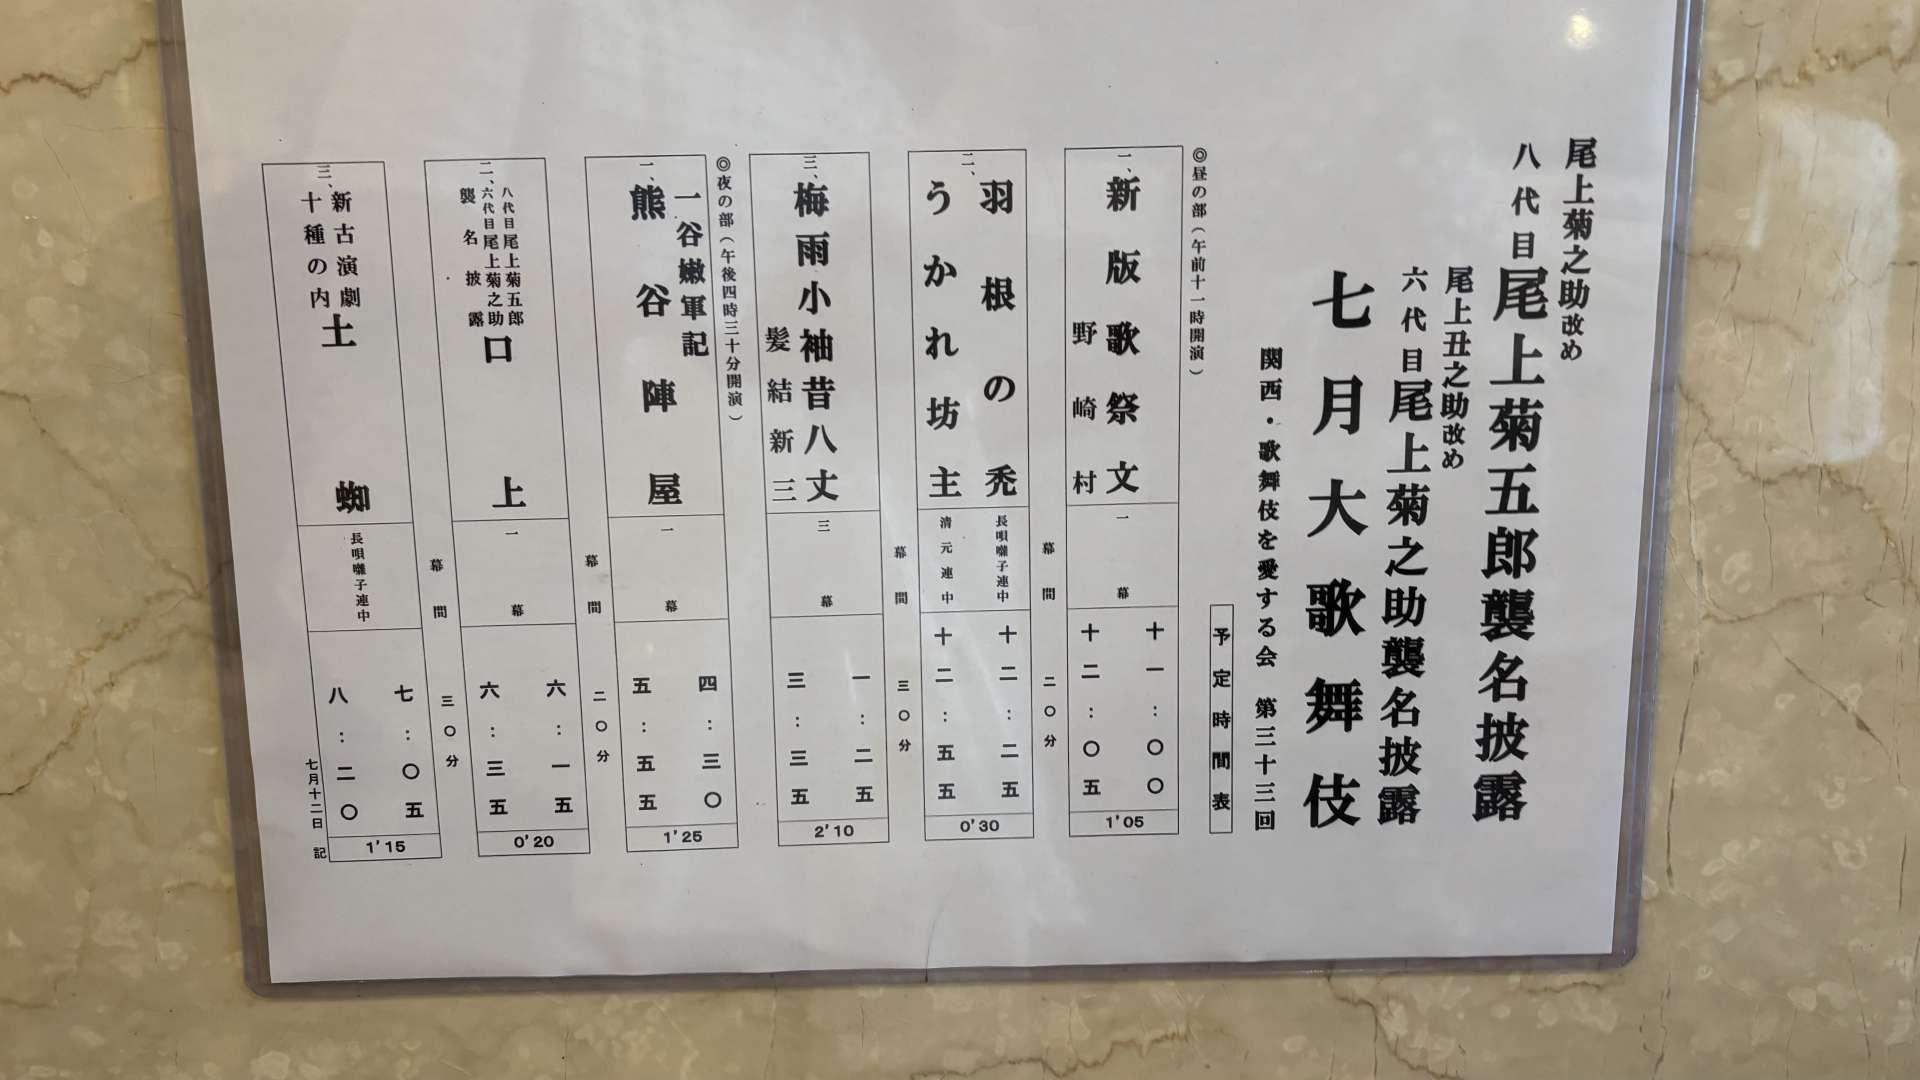 尾上菊之助改め
八代目尾上菊五郎襲名披露
尾上丑之助改め
六代目尾上菊之助襲名披露
七月大歌舞伎
関西・歌舞伎を愛する会 第三十三回
予定時間表
◎昼の部(午前十一時開演)
一、
新版歌祭文
野崎村
一幕
十一:〇〇
十二:〇五
1'05
幕間 二〇分
二、
羽根の禿
うかれ坊主
長唄囃子連中
清元連中
十二:二五
十二:五五
0'30
幕間 三〇分
三、
梅雨小袖昔八丈
髪結新三
三幕
一:二五
三:三五
2'10
◎夜の部(午後四時三十分開演)
一、
一谷嫩軍記
熊谷陣屋
一幕
四:三〇
五:五五
1'25
幕間 二〇分
二、
八代目尾上菊五郎
六代目尾上菊之助
襲名披露
口上
一幕
六:一五
六:三五
0'20
幕間 三〇分
三、
新古演劇
十種の内
土蜘
長唄囃子連中
七:〇五
八:二〇
1'15
七月十二日 記